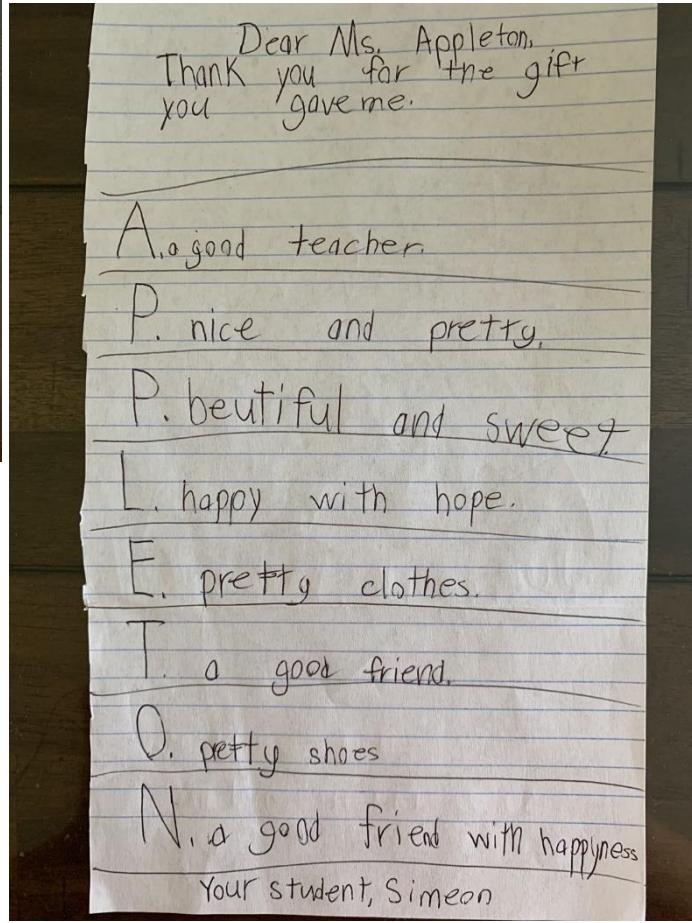 Dear Ms. Appleton,
Thank you for the gift
you gave me.
A. a good teacher.
P. nice and pretty.
P. beutiful and sweet.
L. happy with hope.
E. pretty clothes.
T. a good friend.
O. pretty shoes
N. a good friend with happyness
Your student, Simeon